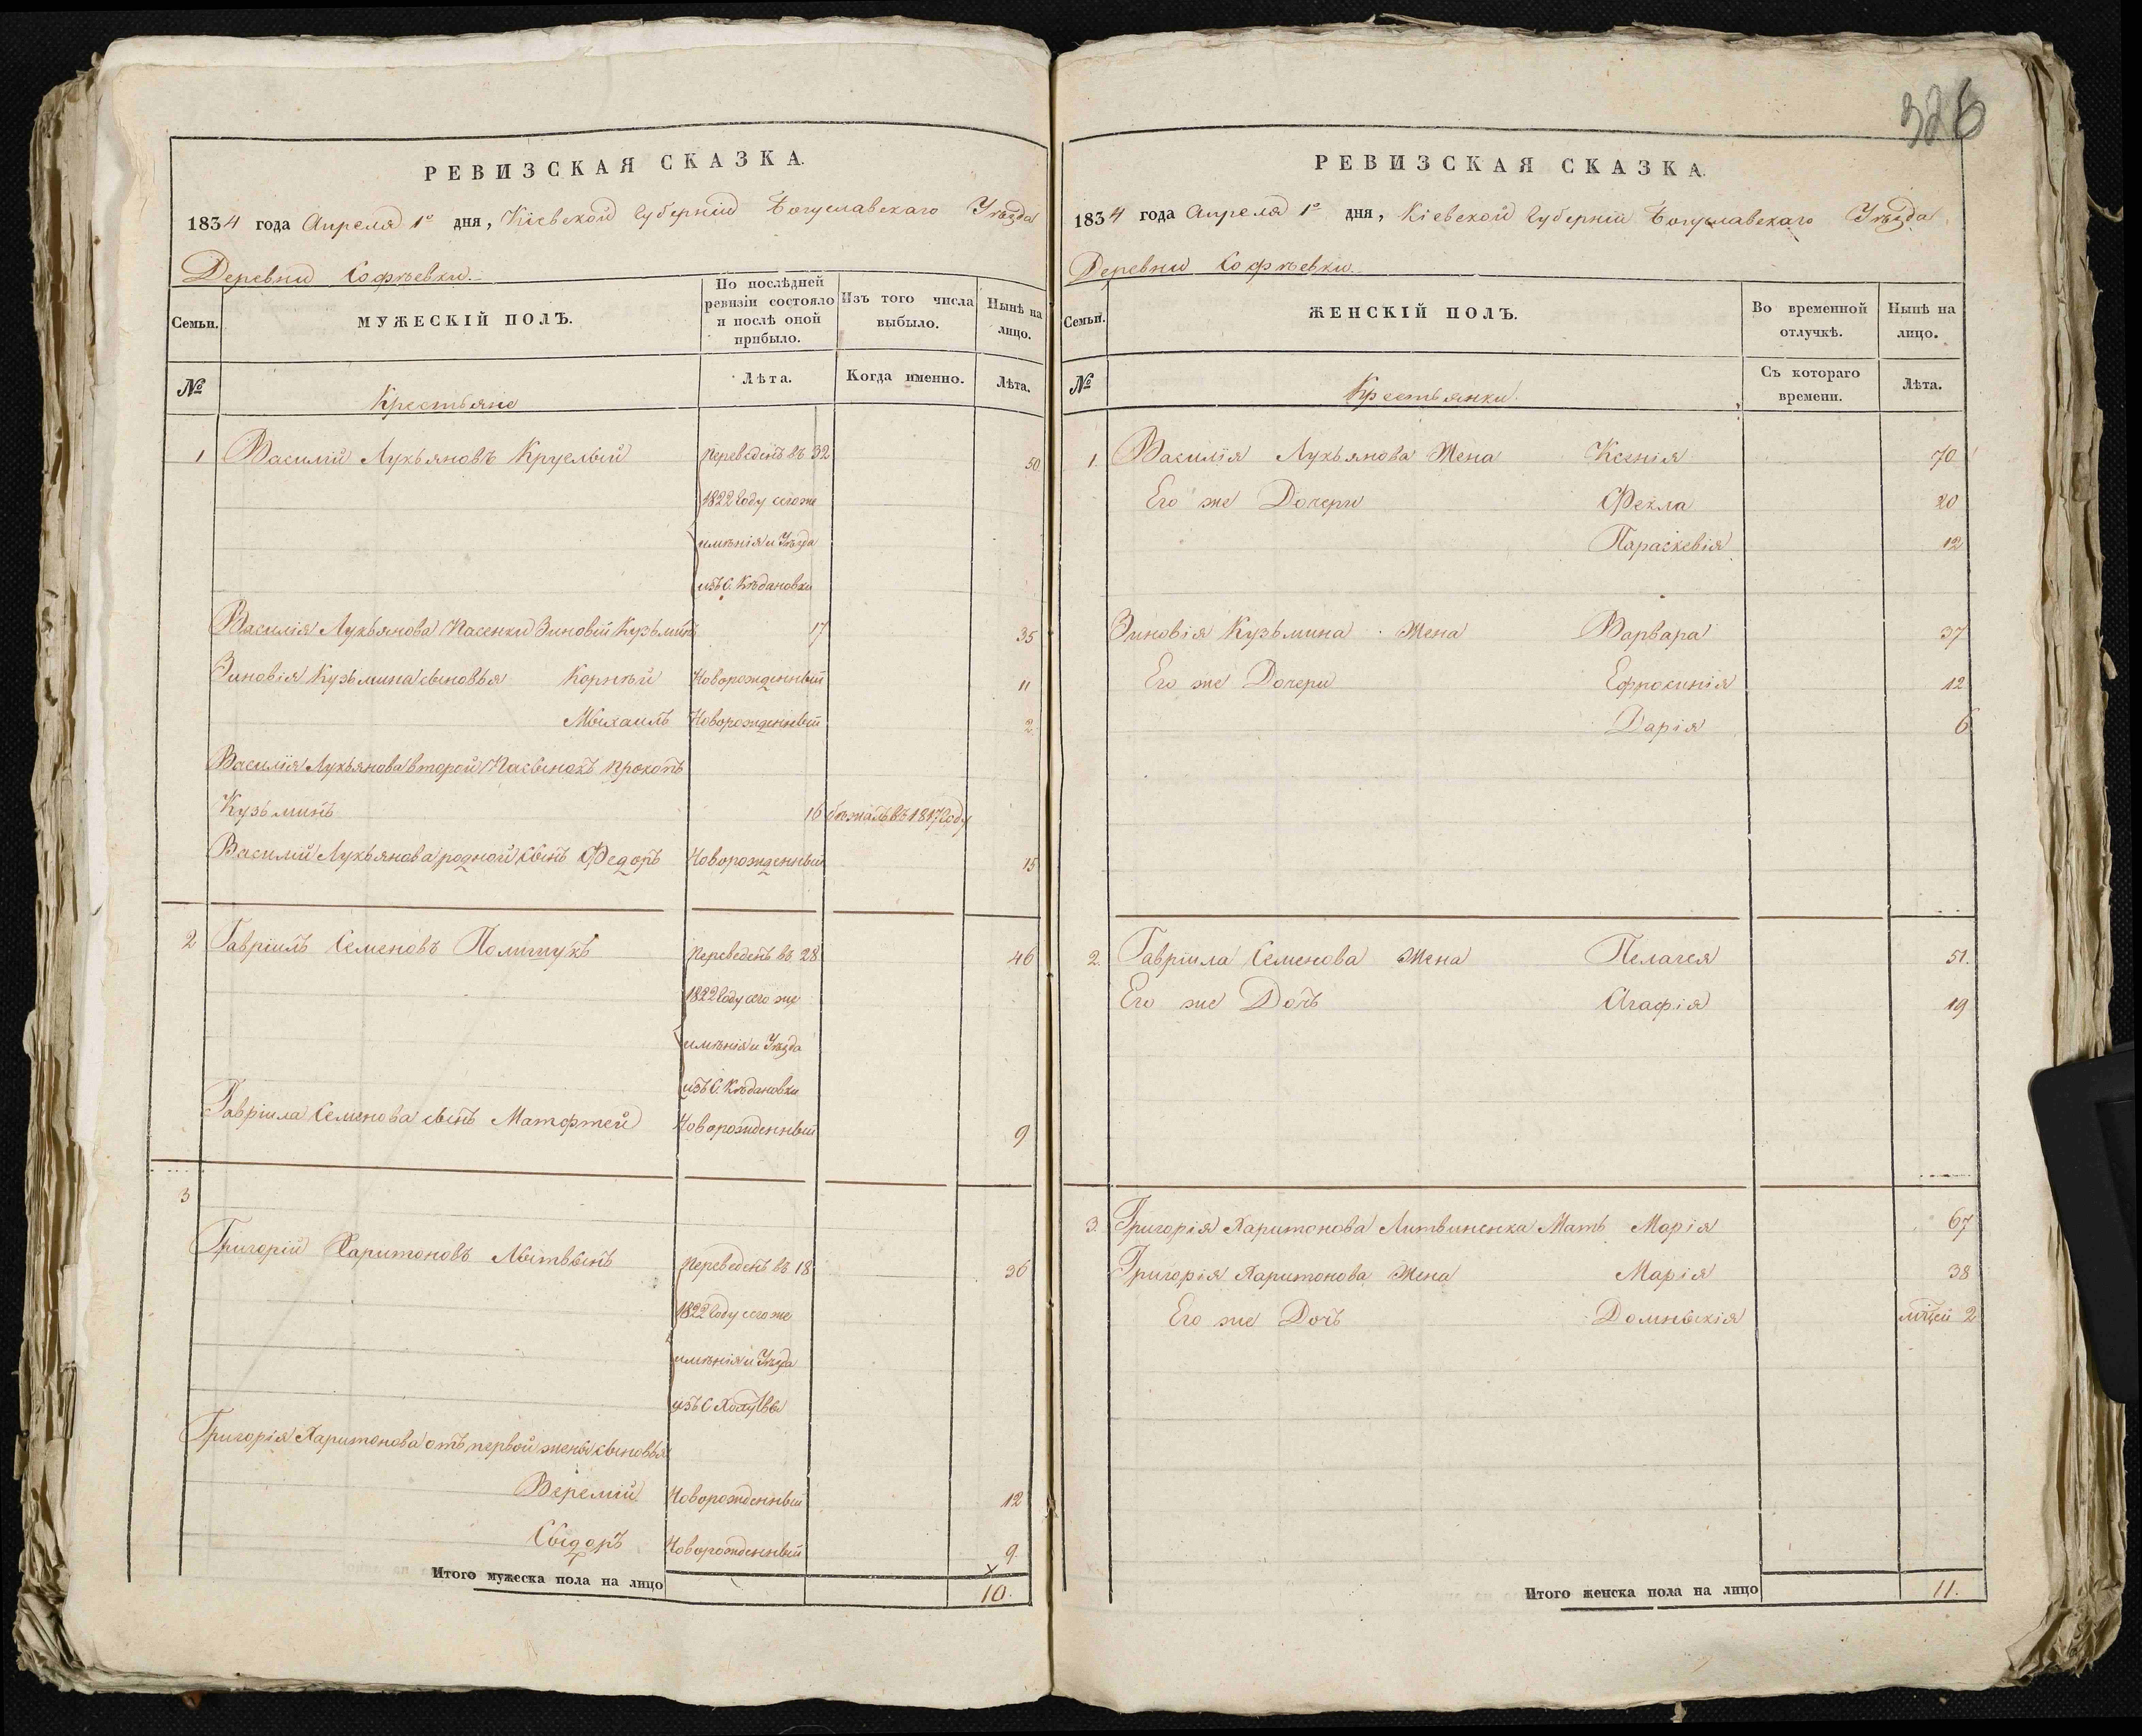 326
РЕВИЗСКАЯ СКАЗКА.
1834 года Апреля 1º дня, Кіевской Губерніи Богуславскаго Уѣзда
Деревни Софѣевки.
Семьи.
МУЖЕСКІЙ ПОЛЪ.
По послѣдней ревизіи состояло и послѣ оной прибыло.
Изъ того числа выбыло.
Нынѣ на лицо.
№
Крестьяне
Лѣта.
Когда именно.
Лѣта.
1 Василій Лукьяновъ Круглый Переведенъ въ 32 50
1822 Году сего же
имѣнія и Уѣзда
изъ С. Кѣдановки
Василія Лукьянова Пасенки Зиновій Кузьминъ 17 35
Зиновія Кузьмина сыновья Корнѣй Новорожденный 11
Мыхаилъ Новорожденный 2
Василія Лукьянова второй Пасынокъ Прокопъ
Кузьминъ 16 бѣжалъ въ 1817 Году
Василій Лукьянова родной сынъ Федоръ Новорожденный 15
2 Гавріилъ Семеновъ Полищукъ Переведенъ въ 28 46
1822 Году сего же
имѣнія и Уѣзда
изъ С. Кѣдановки
Гавріила Семенова сынъ Матфтей Новорожденный 9
3
Григорій Харитоновъ Лытвынъ Переведенъ въ 18 36
1822 Году сего же
имѣнія и Уѣзда
изъ С
Григорія Харитонова отъ первой жены сыновья
Веремій Новорожденный 12
Сыдоръ Новорожденный 9
Итого мужеска пола на лицо 10.
РЕВИЗСКАЯ СКАЗКА.
1834 года Апреля 1º дня, Кіевской Губерніи Богуславскаго Уѣзда
Деревни Софѣевки.
Семьи.
ЖЕНСКІЙ ПОЛЪ.
Во временной отлучкѣ.
Нынѣ на лицо.
№
Крестьянки.
Съ котораго времени.
Лѣта.
1. Василія Лукьянова Жена Ксенія 70
Его же Дочери Фекла 20
Параскевія 12
Зиновія Кузьмина Жена Варвара 37
Его же Дочери Ефросинія 12
Дарія 6
2. Гавріила Семенова Жена Пелагея 51.
Его же Дочь Агафія 19
3. Григорія Харитонова Литвиненка Мать Марія 67
Григорія Харитонова Жена Марія 38
Его же Дочь Домныкія мѣцей 2
Итого женска пола на лицо 11.